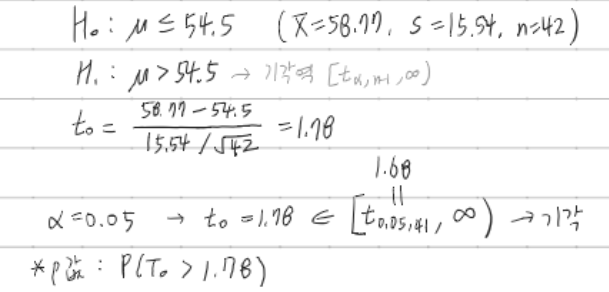 H₀ : μ ≤ 54.5 (X̄=58.77, S=15.54, n=42)
H₁ : μ > 54.5 → 기각역 [t_{α,n-1}, ∞)
t₀ = \frac{58.77-54.5}{15.54/√42} = 1.78
1.68
||
α=0.05 → t₀ =1.78 ∈ [t_{0.05,41}, ∞) → 기각
*p값 : P(T₀ > 1.78)